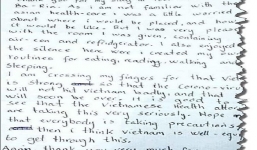 Ba - Ria. I am not familiar with the
asian healthcare I was a little worried
about where I would be placed, and how
it would be like. But I was very pleased
with the room I was given, containing
air-con and refridgerator. I also enjoyed
the silence here so I created my
routines for eating, reading, walking and
sleeping.
I am crossing my fingers for that Viet
is strong so that the Corona-virus
will not hit vietnam badly and that
will soon be over. It is good
see that the vietnamese health
are taking this very seriously. Hope
that everybody is taking precautions
then I think vietnam is well-equ
to get through this.
Again thank very much